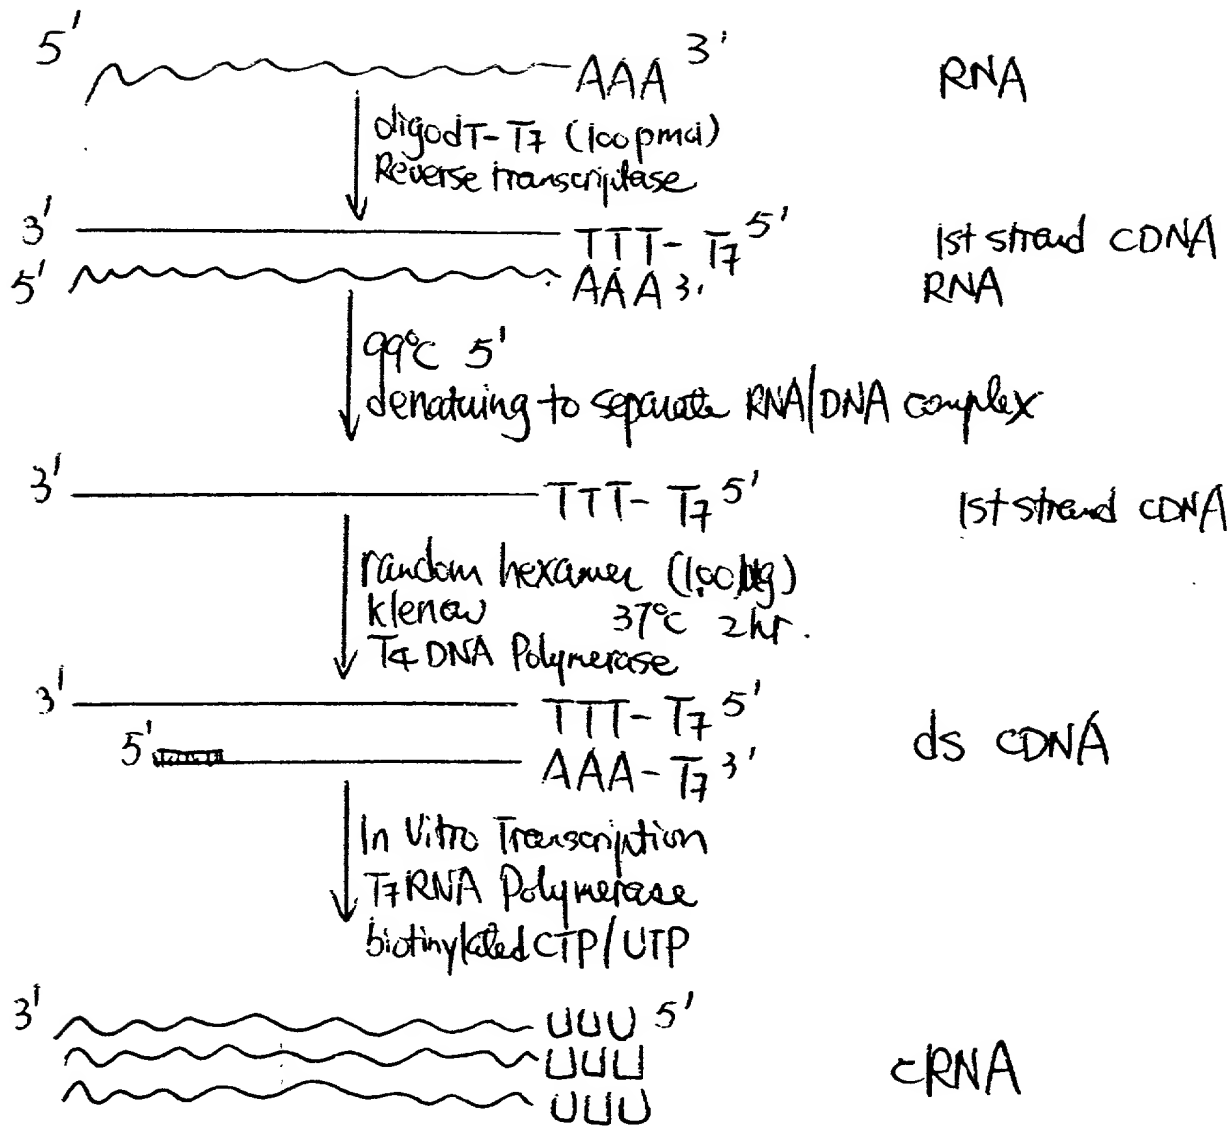 5' AAA 3' RNA
oligodT-T7 (100pmol)
Reverse transcriptase
3' TTT-T7 5' 1st strand cDNA
5' AAA 3' RNA
99°C 5'
denaturing to separate RNA/DNA complex
3' TTT-T7 5' 1st strand cDNA
random hexamer
klenow 37°C 2hr.
T4 DNA Polymerase
3' TTT-T7 5'
5' AAA-T7 3' ds cDNA
In Vitro Transcription
T7 RNA Polymerase
biotinylated CTP/UTP
3' UUU 5'
UUU cRNA
UUU